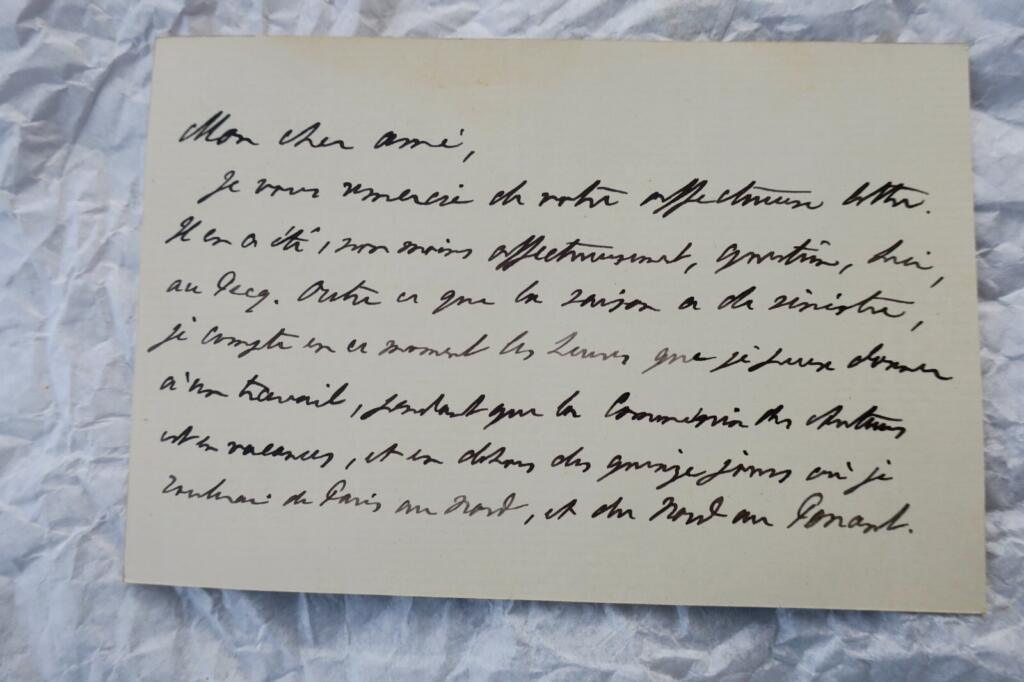 Mon cher ami,
Je vous remercie de votre affectueuse lettre.
Il en a été, non moins affectueusement, question, hier,
au Pecq. Outre ce que la saison a de sinistre,
je compte en ce moment les heures que je peux donner
à un travail, pendant que la Commission des Auteurs
est en vacances, et en dehors des quinze jours où je
roulerai de Paris au Nord, et du Nord au Ponant.